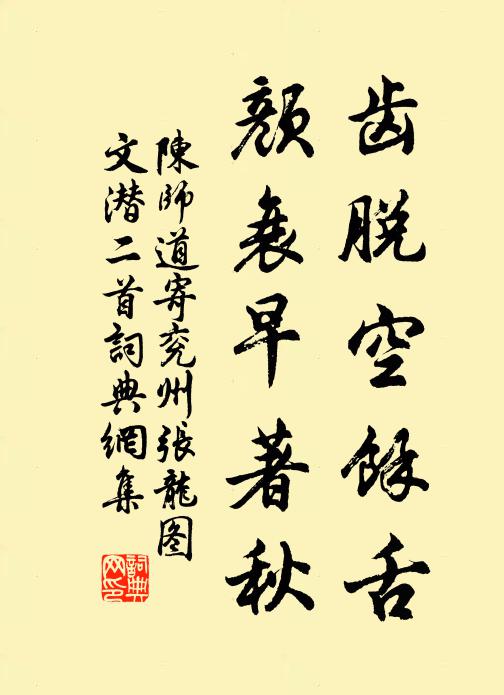 齿脱空餘舌
顔衰早著秋
陳師道寄兖州張龍图
文潜二首詞典網集
詞典
网印